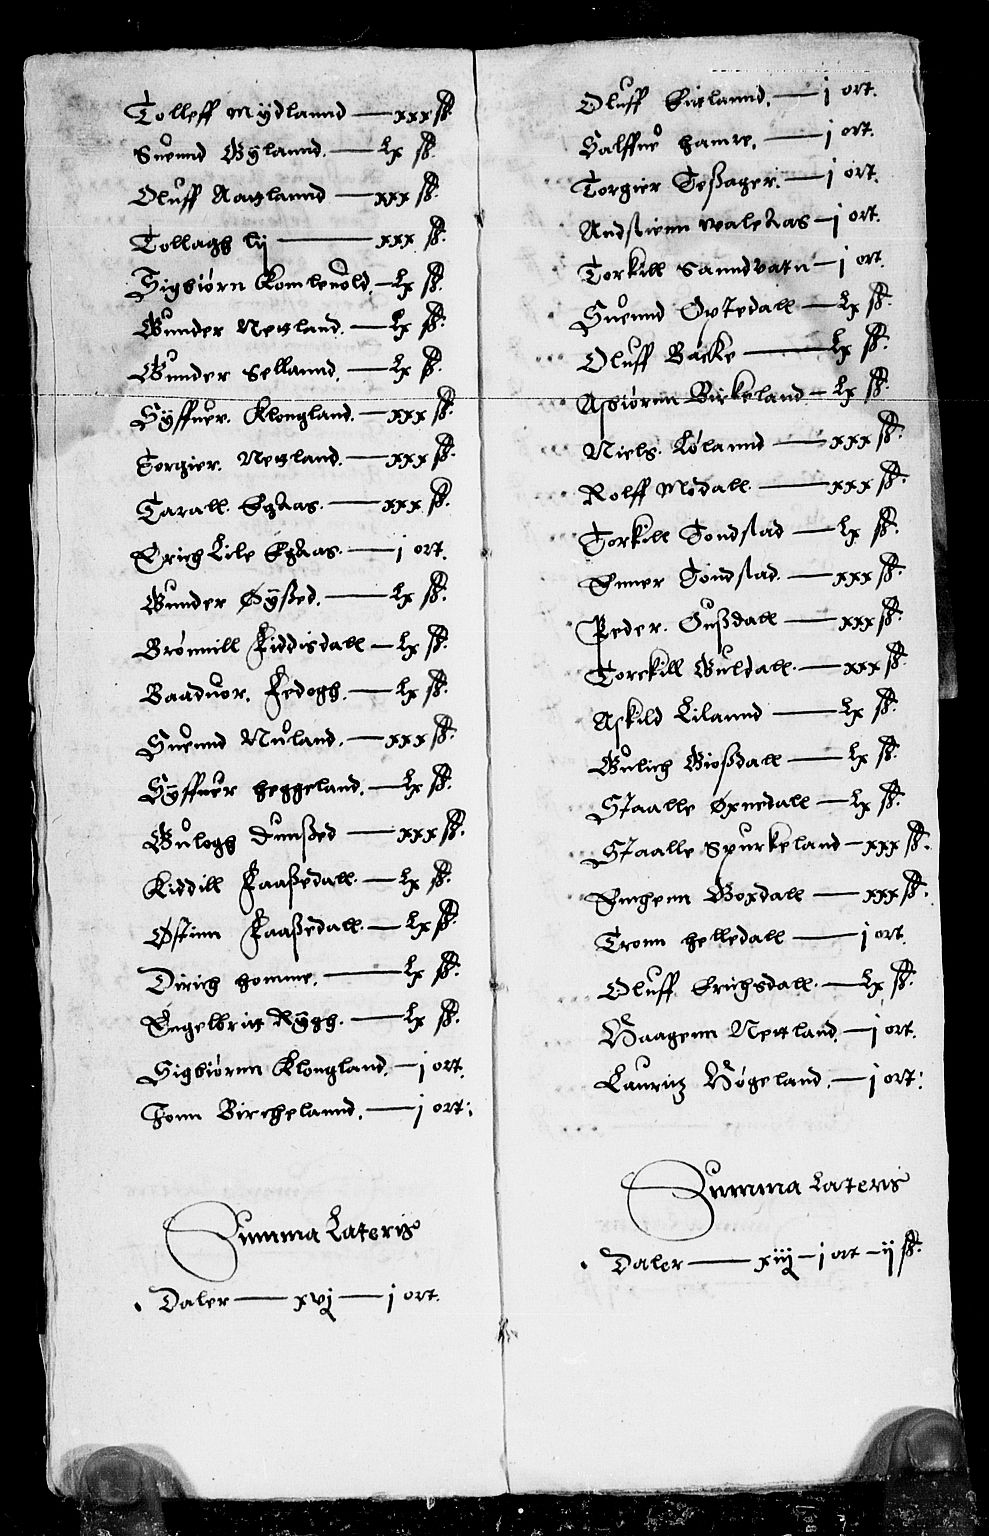 Tolleff Mydlannd — xxx sß.
Suennd Gylannd. — Lx sß.
Oluff Naglannd — xxx sß.
Tollagh lij — xxx sß.
Sigbiørn Komleuold. — Lx sß.
Gunder Netland. — Lx sß.
Gunder Sellannd. — Lx sß.
Syffuer. Klongland. — xxx sß.
Torgier. Netland. — xxx sß.
Tarall. Egaas. — xxx sß.
Erich Lile Egaas. — j ort.
Gunder Øysted. — Lx sß.
Brønnill Fiddisdall — Lx sß.
Baaduor. Fedogh. — Lx sß.
Suennd Nuland. — xxx sß.
Syffuer heggeland. — Lx sß.
Gulogh Dunsted — xxx sß.
Kiddill Faaßedall. — Lx sß.
Østinn Faaßedall. — Lx sß.
Dirich homme. — Lx sß.
Engelbrit Rygh. — Lx sß.
Sigbiørnn Klongland. — j ort.
Jonn Birchelannd. — j ort:
Summa Lateris
Daler — xvj — j ort.
Oluff Eielannd. — j ort.
Salffue hamre. — j ort.
Torgier Toßager. — j ort.
Andstienn waleraas — j ort.
Torkill Sanndvatn — j ort.
Suennd Optedall — Lx sß.
Oluff Backe — Lx sß.
Asbiørnn Birkeland — Lx sß.
Niels. Lølannd — xxx sß.
Rolff Modall. — xxx sß.
Torkill Tondstad — Lx sß.
Enner Tondstad. — xxx sß.
Peder. Oußdall — xxx sß.
Torckill Guldall. — xxx sß.
Askild Lilannd — Lx sß.
Gulich Gioßdall — Lx sß.
Staalle Øxnedall — Lx sß.
Staalle Spurkeland — xxx sß.
Enchenn Goxdall — xxx sß.
Tronn helledall — j ort.
Oluff Erichsdall. — Lx sß.
Vaagenn Nettland. — j ort.
Lauritz Høgeland. — j ort:
Summa Lateris
Daler — xiij — j ort — ij sß.